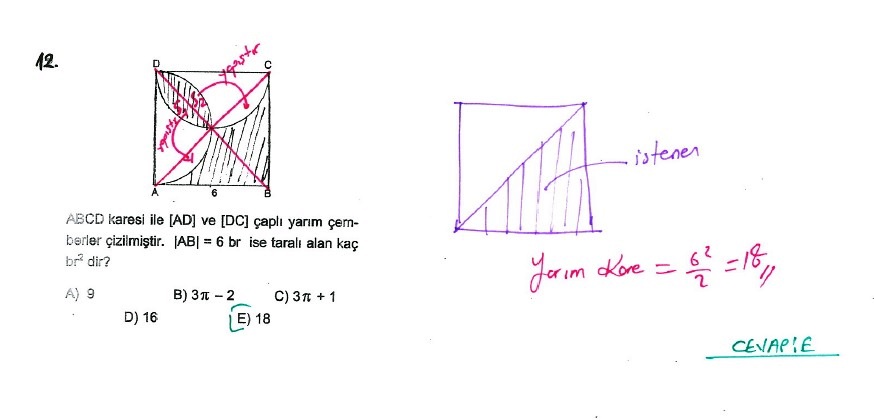 12.
D
C
yapıştır
yapıştır
A
6
B
ABCD karesi ile [AD] ve [DC] çaplı yarım çem-
berler çizilmiştir. |AB| = 6 br ise taralı alan kaç
br² dir?
A) 9 B) 3π – 2 C) 3π + 1
D) 16 E) 18
istenen
Yarım Kare = 6²/2 = 18
CEVAP:E